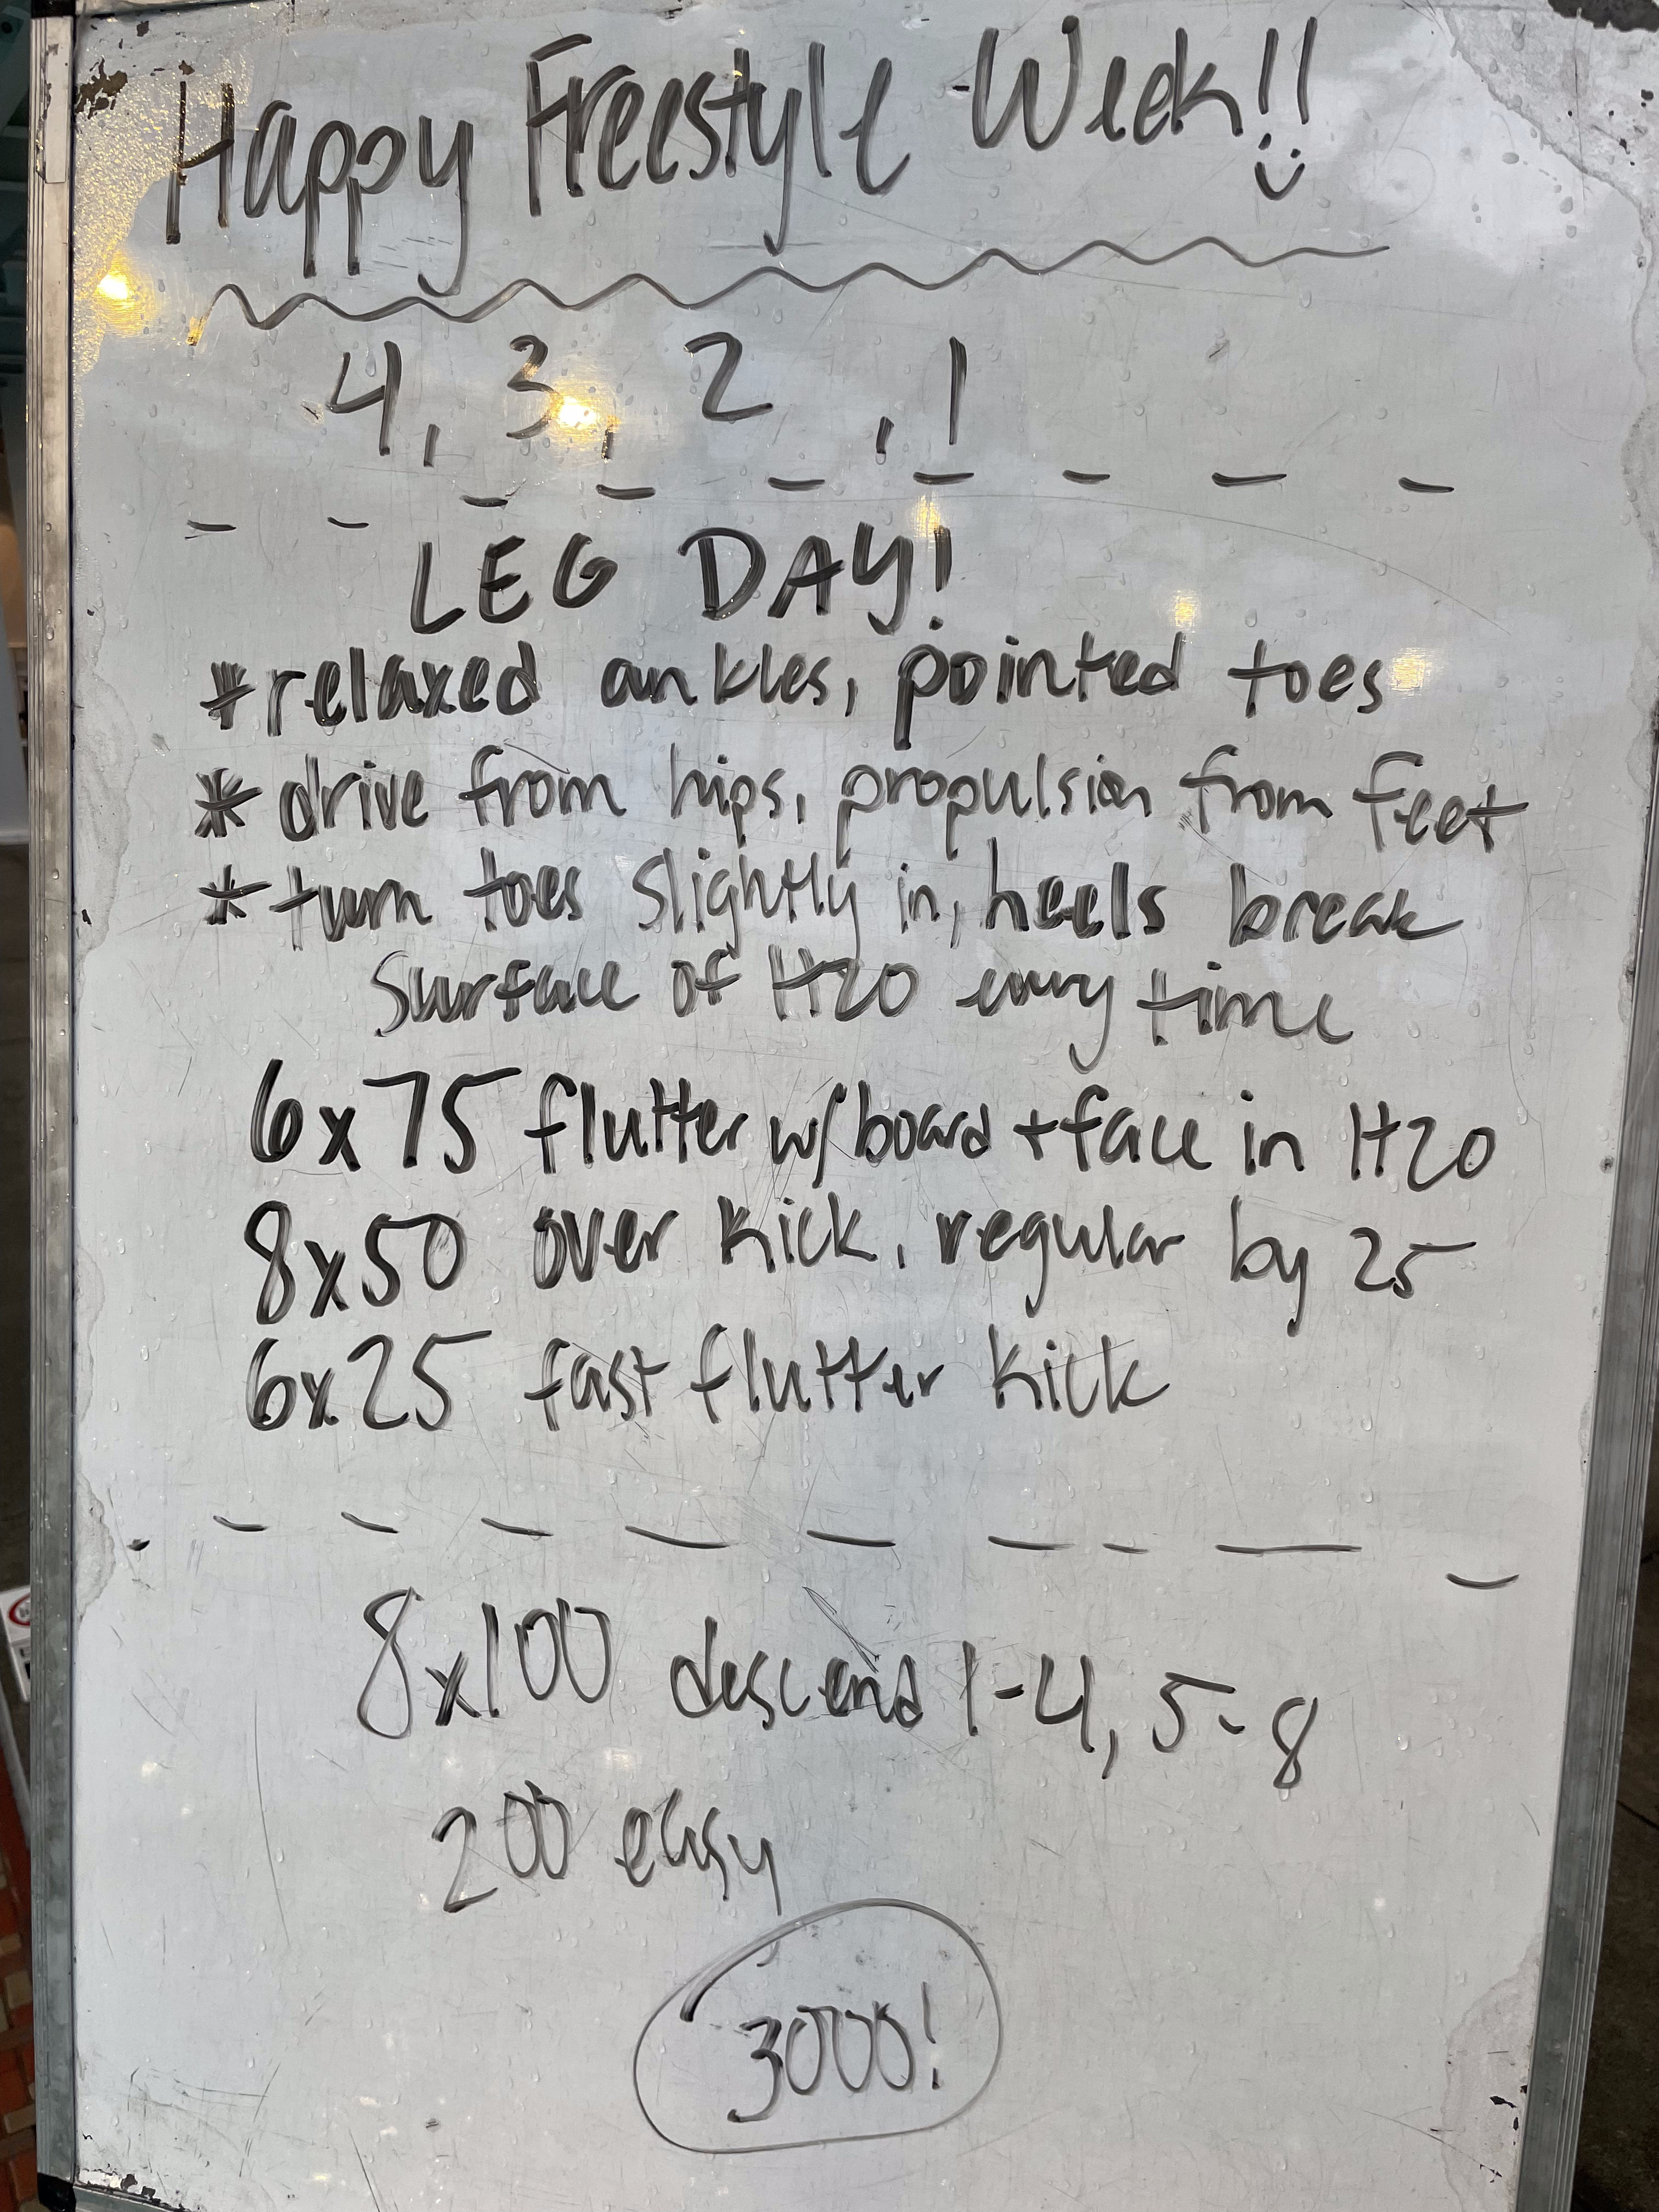 Happy Freestyle Week!!
4, 3, 2, 1
LEG DAY!
*relaxed ankles, pointed toes
* drive from hips, propulsion from feet
* turn toes slightly in, heels break
surface of H2O every time
6x75 flutter w/board + face in H2O
8x50 over kick, regular by 25
6x25 fast flutter kick
8x100 descend 1-4, 5-8
200 easy
3000!